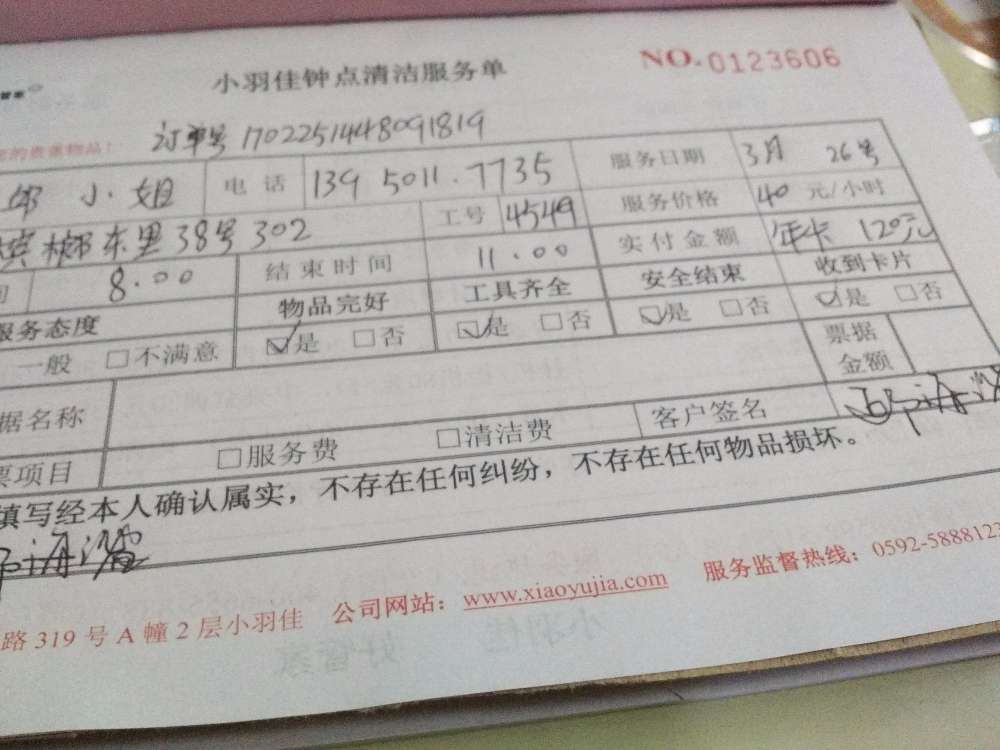 小羽佳钟点清洁服务单 NO.0123606
的贵重物品！ 订单号 1702251448091819
邱 小姐 电话 139 5011.7735 服务日期 3月 26号
槟榔东里38号302 工号 4549 服务价格 40 元/小时
间 8.00 结束时间 11.00 实付金额 年卡 120元
服务态度 物品完好 工具齐全 安全结束 收到卡片
一般 □不满意 ☑是 □否 ☑是 □否 ☑是 □否 ☑是 □否
据名称 票据金额
票项目 □服务费 □清洁费 客户签名
填写经本人确认属实，不存在任何纠纷，不存在任何物品损坏。
路 319 号 A 幢 2 层小羽佳 公司网站：www.xiaoyujia.com 服务监督热线：0592-5888123